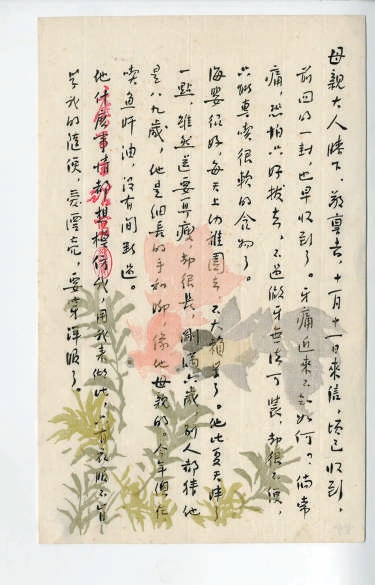 母親大人膝下，敬稟者，十一月十一日来信，頃已收到，
前回的一封，也早收到了。牙痛近来不知如何？倘常
痛，恐怕只好拔去，不過做牙無法可裝，却很不便，
只能專喫很軟的食物了。
海嬰很好，每天上幼稚園去，不大賴學了。他比夏天胖了
一點，雖然還要算瘦，却很長，剛滿六歲，别人都猜他
是八九歲，他是細長的手和脚，像他母親的。今年總在
喫魚肝油，没有間斷過。
他什麼事情都想模仿我，用我来做比，只有衣服不肯
學我的隨便，愛漂亮，要穿洋服了。